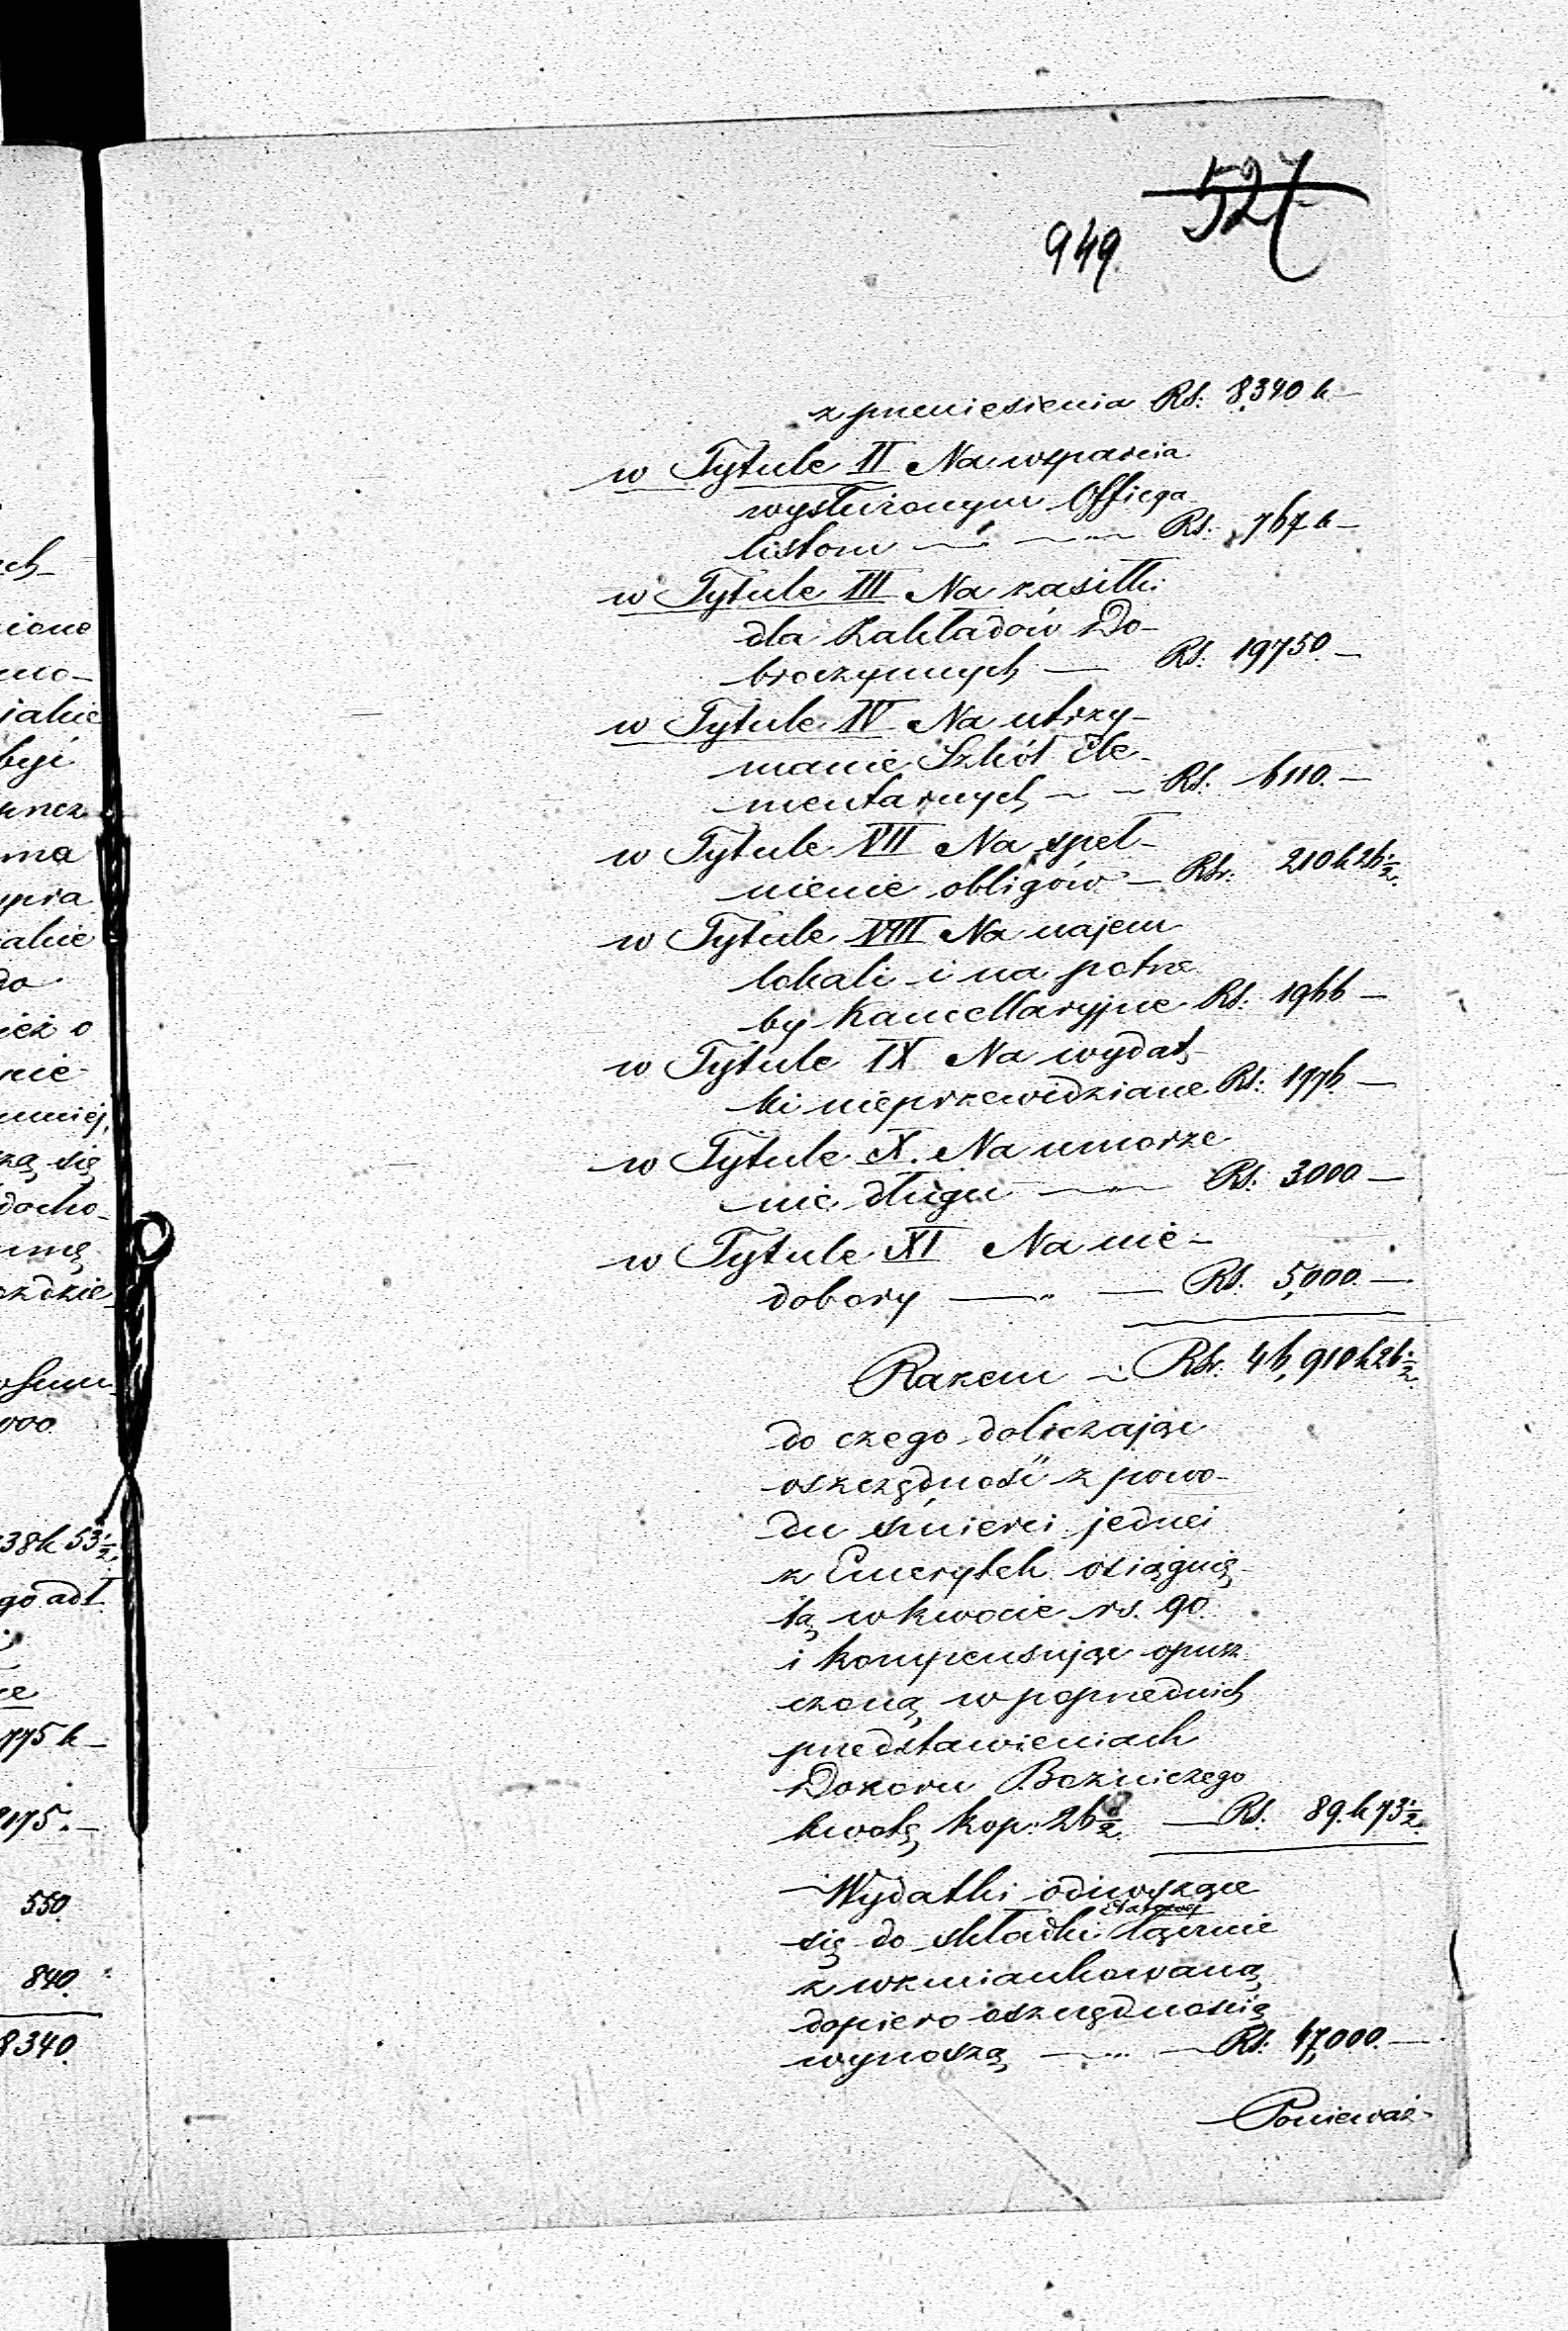 949 527
z przeniesienia Rs: 8340 k –
w Tytule II Na wsparcia
wysłużonym Officya
listom — — Rs: 767 k –
w Tytule III Na zasiłki
dla Zakładów Do-
broczynnych — Rs: 19750 –
w Tytule IV Na utrzy-
manie Szkół Ele-
mentarnych — – Rs. 6110. –
w Tytule VII Na speł-
nienie obligów – Rsr: 210 k 26½.
w Tytule VIII Na najem
lokali i na potrze
by Kancellaryjne Rs: 1966 –
w Tytule IX Na wydat-
ki nieprzewidziane Rs: 1776. –
w Tytule X. Na umorze
nie długu — Rs. 3000 –
w Tytule XI Na nie-
dobory — „ — Rs. 5,000. –
Razem – Rsr. 46,910 k 26½.
do czego doliczając
oszczędność z powo-
du śmierci jednej
z Emerytek osiągnię-
tą w kwocie rs. 90.
i kompensując opusz
czoną w poprzednich
przedstawieniach
Dozoru Bożniczego
kwotę kop: 26½ — Rs. 89. k 73½.
Wydatki odnoszące
się do składki etatowej łącznie
z wzmiankowaną
dopiero oszczędnością
wynoszą — „ — Rs: 47,000. –
Ponieważ